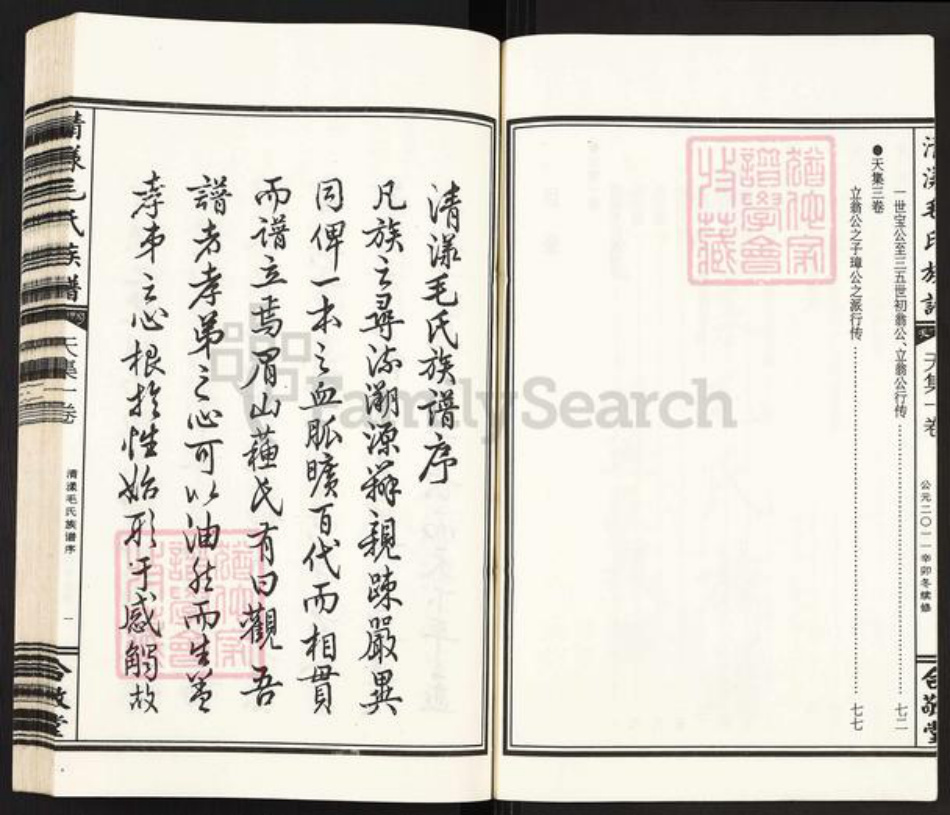 清漾毛氏族譜
天集一卷
公元二〇一一辛卯冬续修
合敬堂
一世宝公至三五世初翁公、立翁公行传 七二
●天集三卷
立翁公之子璋公之派行传 七七
猶他家
譜學會
收藏
清漾毛氏族譜序
凡族之尋流溯源辨親疎嚴異
同俾一本之血脈曠百代而相貫
而譜立焉眉山蘓氏有曰觀吾
譜者孝弟之心可以油然而生葢
孝弟之心根於性始形于感觸故
猶他家
譜學會
收藏
清漾毛氏族譜
天集一卷
清漾毛氏族谱序
一
合敬堂
FamilySearch